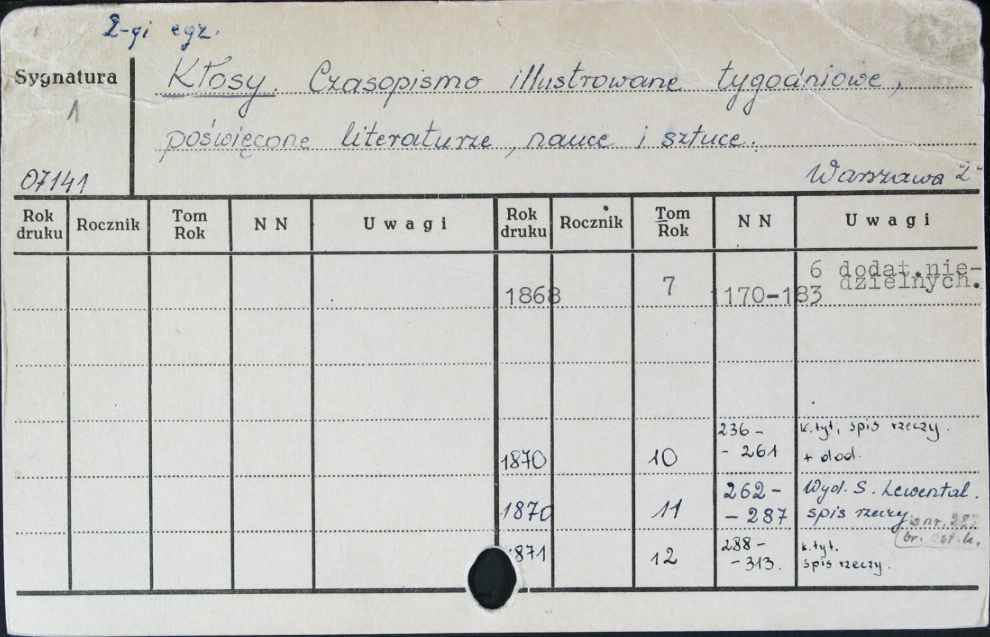 2-gi egz.
Sygnatura
1
07141
Kłosy. Czasopismo illustrowane tygodniowe,
poświęcone literaturze, nauce i sztuce.
Warszawa 2°
Rok druku Rocznik Tom Rok NN Uwagi Rok druku Rocznik Tom Rok NN Uwagi
1868 7 1170-183 6 dodat.nie-
dzielnych.
1870 10 236 - - 261 k.tyt, spis rzeczy.
+ dod.
1870 11 262 - - 287 Wyd. S. Lewental.
spis rzeczy
w nr. 287
br. ost. k.
1871 12 288 - - 313. k.tyt.
spis rzeczy.